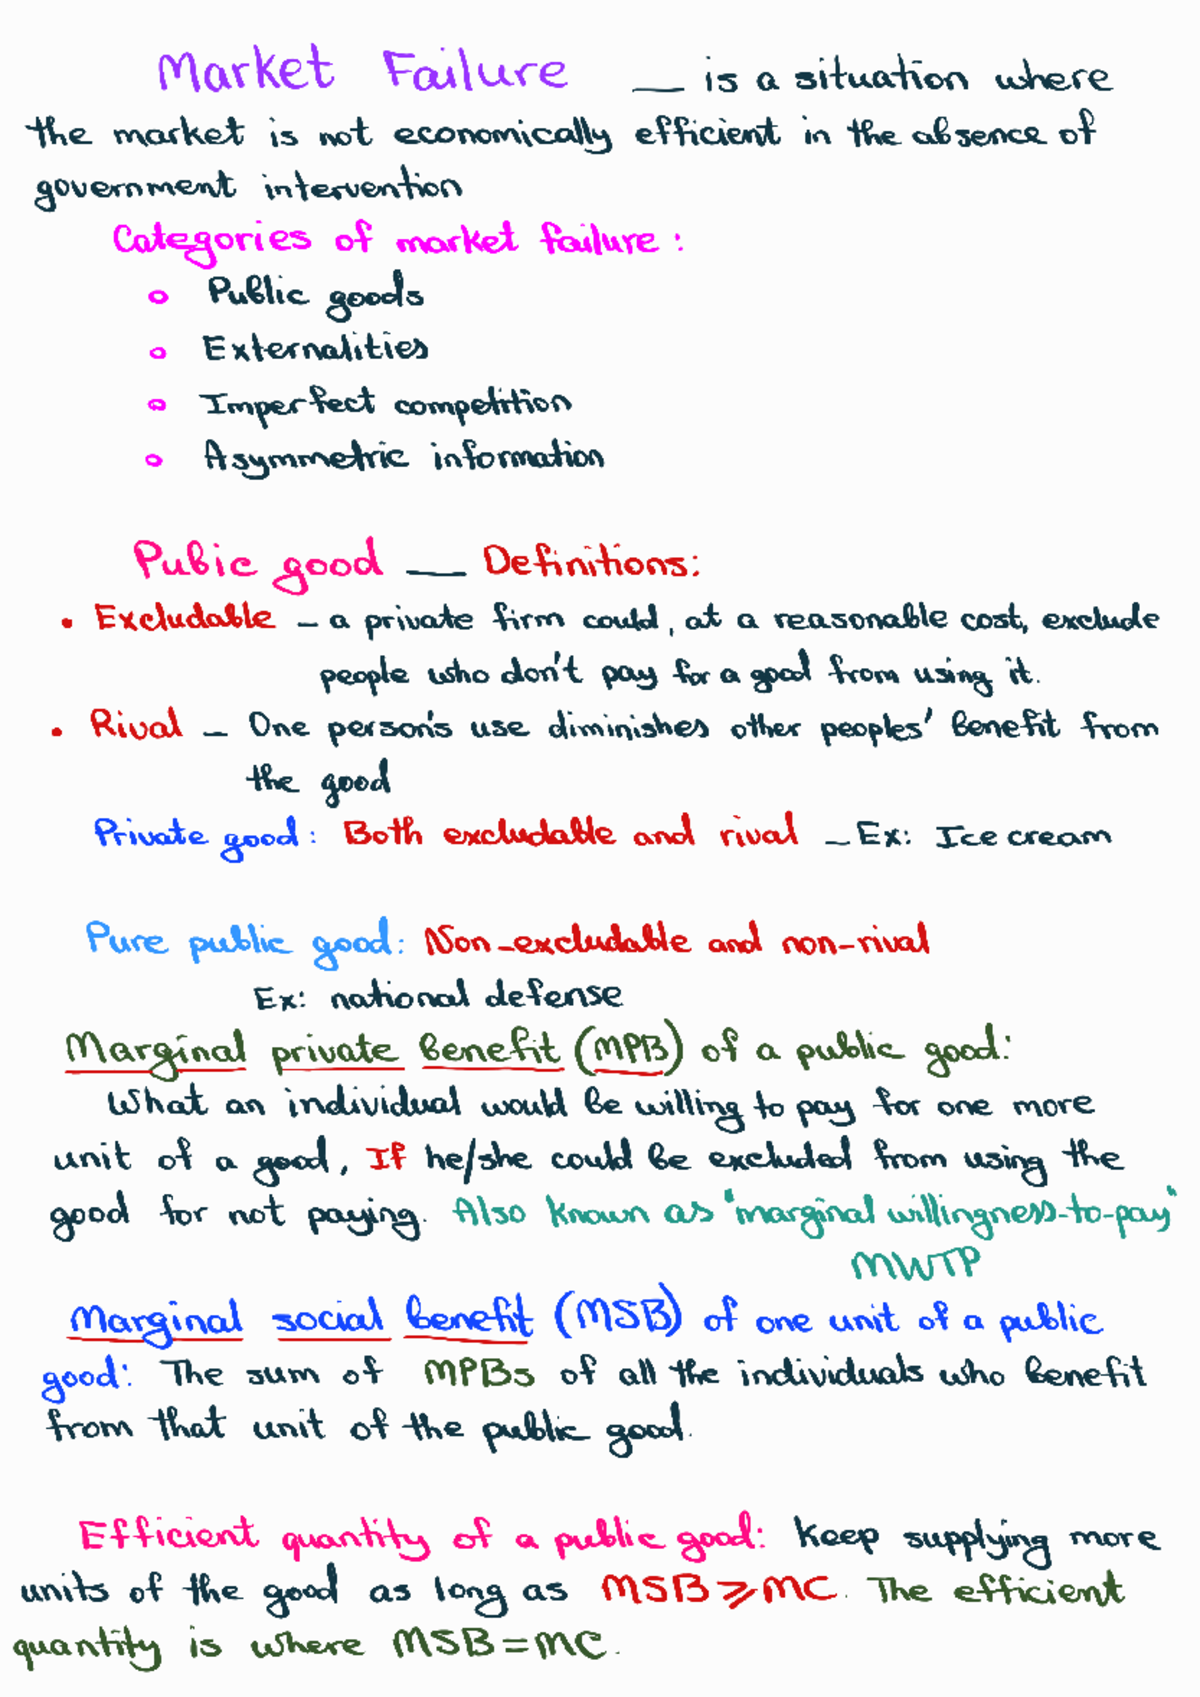 Market Failure — is a situation where
the market is not economically efficient in the absence of
government intervention
Categories of market failure :
o Public goods
o Externalities
o Imperfect competition
o Asymmetric information
Pubic good — Definitions:
• Excludable – a private firm could, at a reasonable cost, exclude
people who don't pay for a good from using it.
• Rival – One person's use diminishes other peoples' benefit from
the good
Private good: Both excludable and rival – Ex: Ice cream
Pure public good: Non-excludable and non-rival
Ex: national defense
Marginal private benefit (MPB) of a public good:
What an individual would be willing to pay for one more
unit of a good, If he/she could be excluded from using the
good for not paying. Also known as "marginal willingness-to-pay"
MWTP
Marginal social benefit (MSB) of one unit of a public
good: The sum of MPBs of all the individuals who benefit
from that unit of the public good.
Efficient quantity of a public good: Keep supplying more
units of the good as long as MSB ⩾ MC. The efficient
quantity is where MSB = MC.